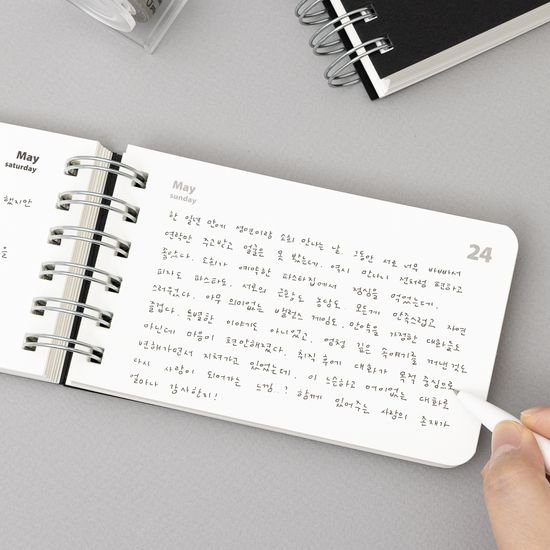 May
saturday
했지만
을
May
sunday
24
한 일년 만에 쌩얀이랑 소희 만나는 날. 그동안 서로 너무 바빠서
연락만 주고받고 얼굴은 못 봤는데. 역시 만나니 전처럼 편하고
좋았다. 소희가 예약한 파스타집에서 점심을 먹었는데.
피자도 파스타도. 서로의 근황도 농담도 모든게 만족스럽고 자연
스러웠다. 아무 의미없는 밸런스 게임도. 만약을 가정한 대화들도
즐겁다. 특별한 이야기도 아니었고. 엄청 깊은 속얘기를 꺼낸것도
아닌데 마음이 편안해졌다. 취직 후에 대화가 목적 중심으로
변해가면서 지쳐가고 있었는데. 이 느슨하고 어이없는 대화로
다시 사람이 되어가는 느낌..? 함께 있어주는 사람의 존재가
얼마나 감사한지!